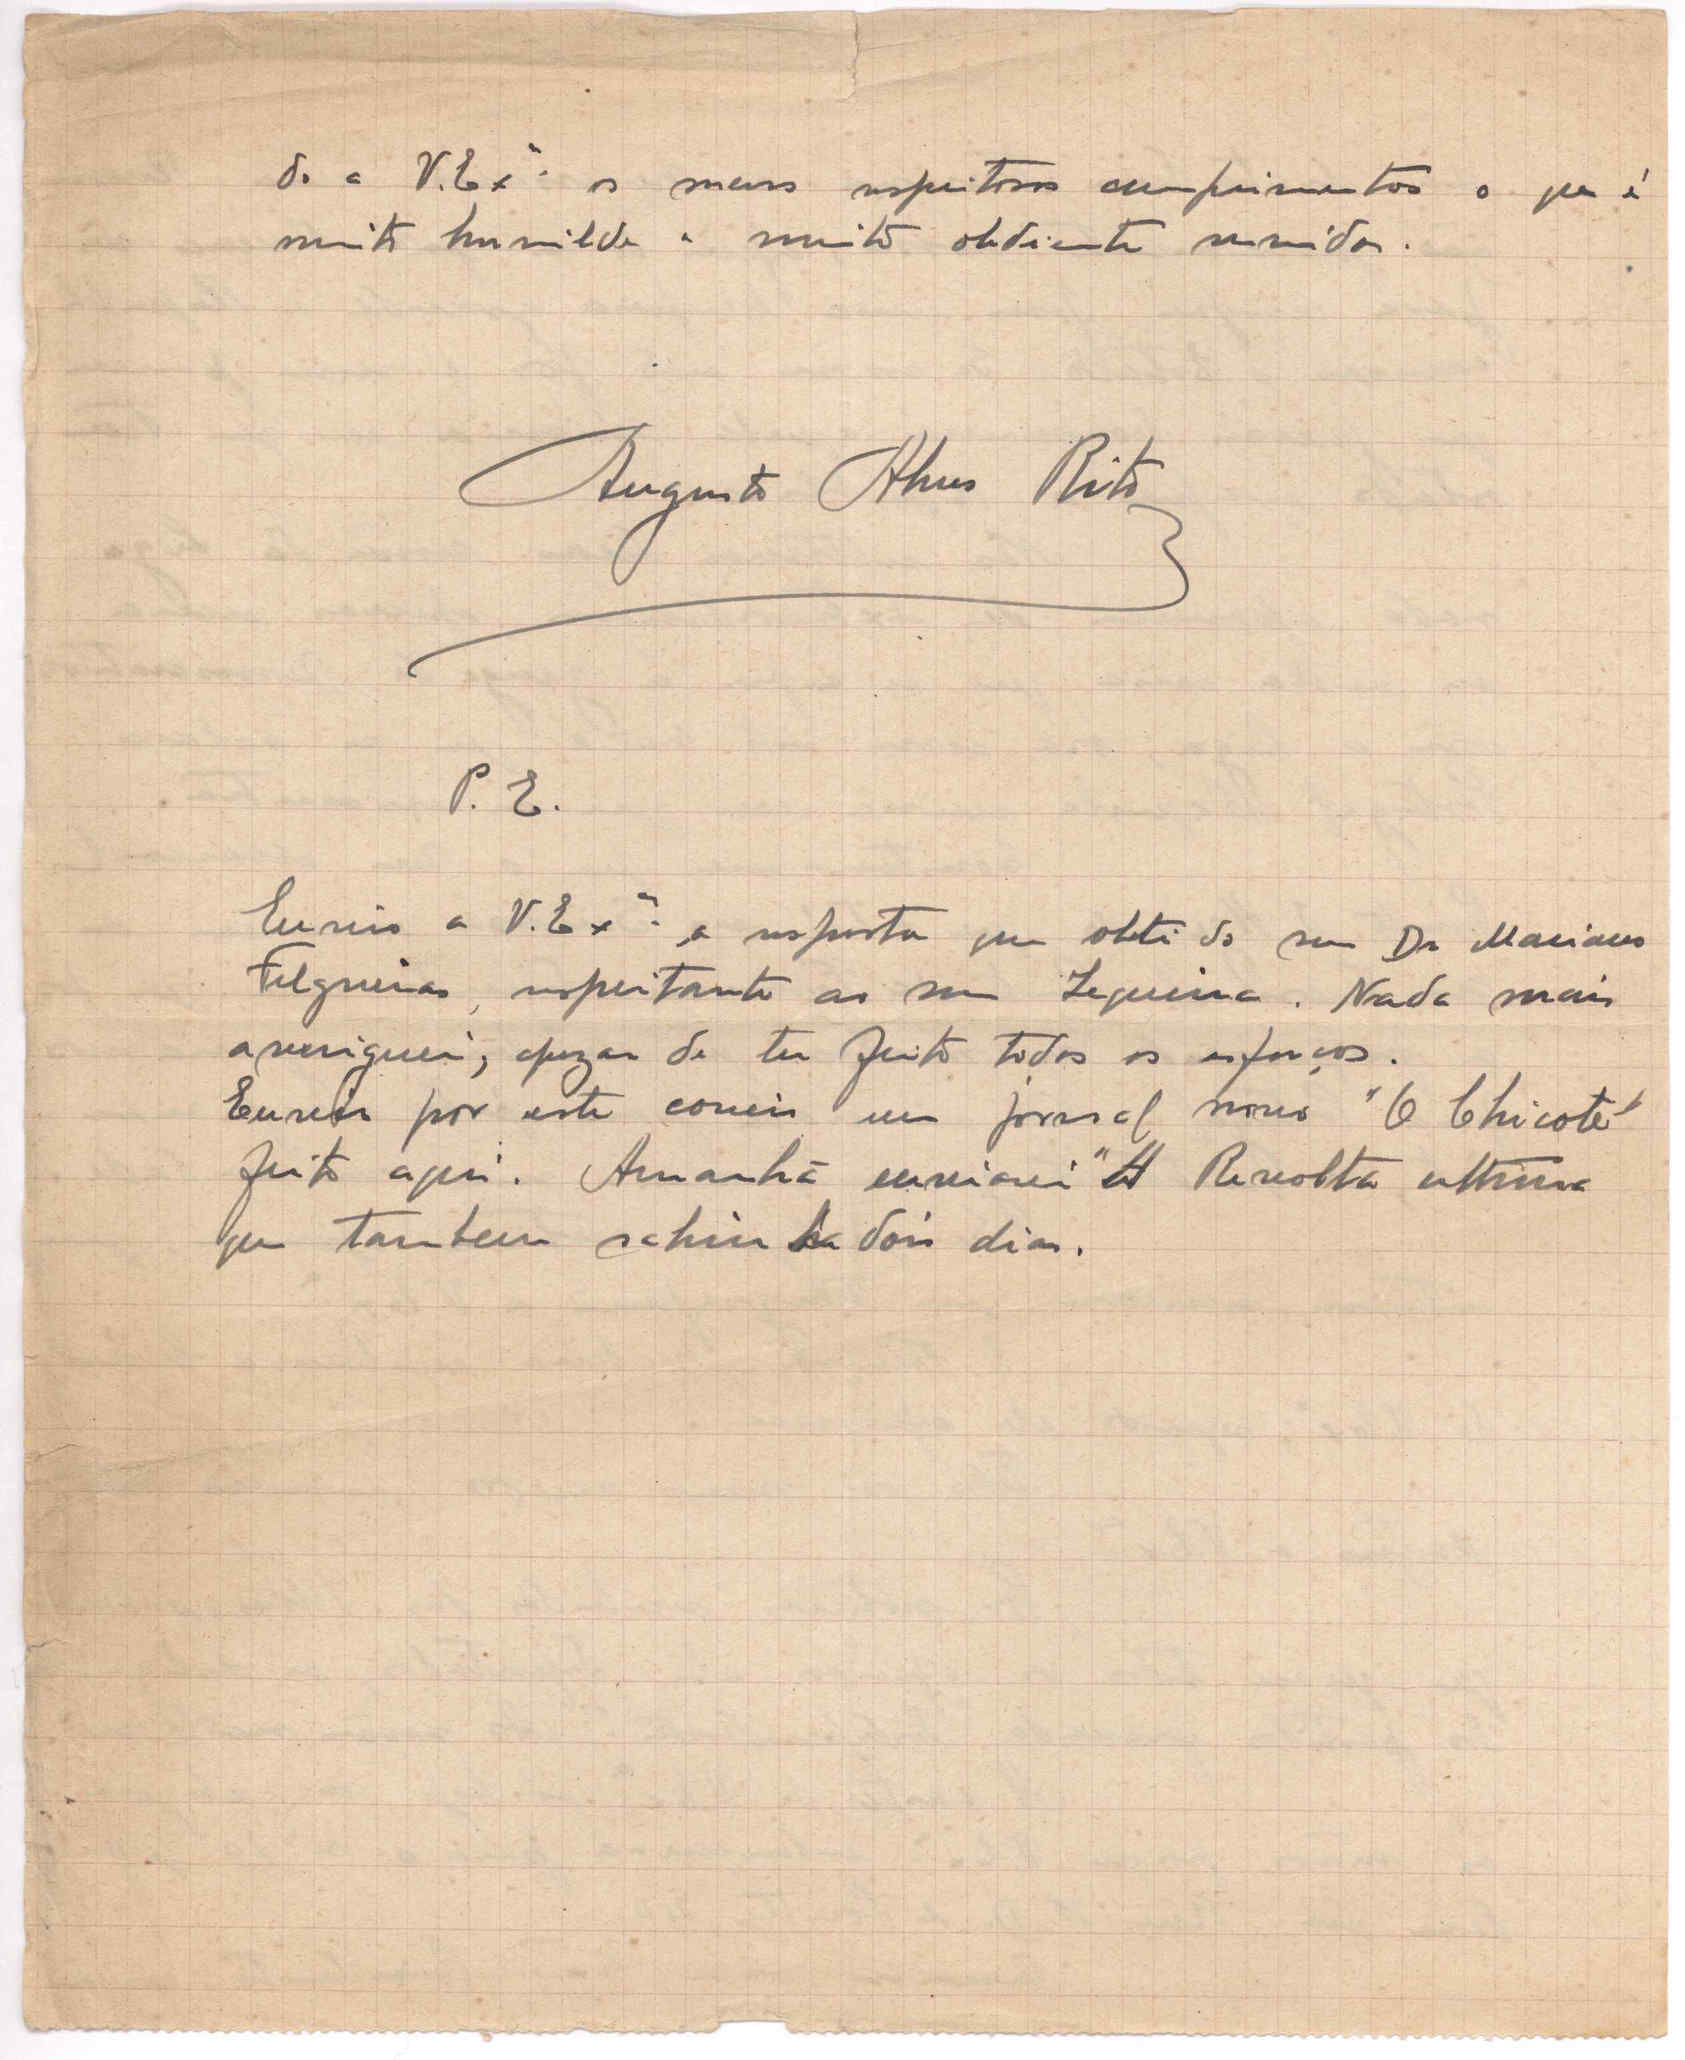 do a V. Exª. os meus respeitosos cumprimentos o que é
muito humilde e muito obediente servidor.
Augusto Alves Rito
P. E.
Envio a V. Exª. a resposta que obti do snr Dr Mariano
Felgueiras, respeitante ao snr Zequeira. Nada mais
averiguei, apezar de ter feito todos os esforços.
Enviei por este correio um jornal novo "O Chicote"
feito aqui. Amanhã enviarei "A Revolta ultima
que tambem sahiu ha dois dias.